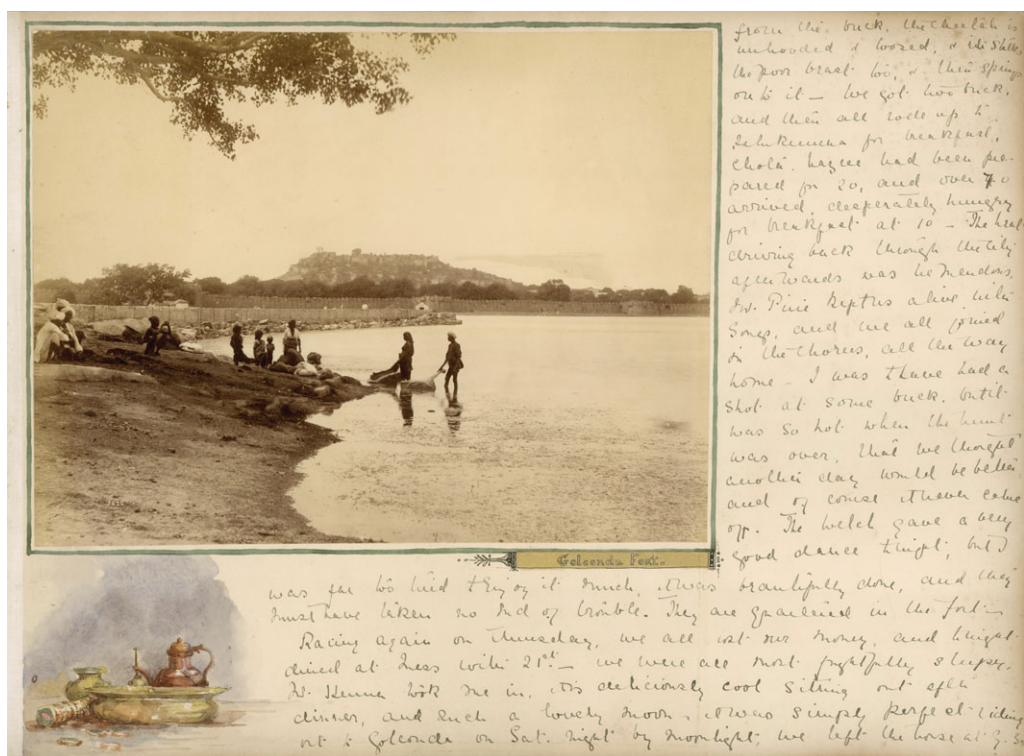 from the buck, the cheetah is
unhooded & loosed, &
the poor beast too, & then springs
on to it — We got two buck,
and then all rode up to
for breakfast,
Chota hazree had been pre-
pared for 20, and over 70
arrived, desperately hungry
for breakfast at 10 — The heat
driving back through the city
afterwards was tremendous,
Mr. Pirie kept us alive with
Songs, and we all joined
in the Chorus, all the way
home — I was to have had a
shot at some buck, but it
was so hot when the hunt
was over, that we thought
another day would be better
and of course it never came
off. The Welch gave a very
good dance tonight, but I
Golconda Fort.
was far too tired to enjoy it much, it was beautifully done, and they
must have taken no end of trouble. They are quartered in the fort —
Racing again on Thursday, we all lost our money, and tonight
dined at Mess with 21st — we were all most frightfully sleepy.
Mr. Kenna took me in, it is deliciously cool sitting out after
dinner, and such a lovely moon, it was simply perfect riding
out to Golconda on Sat. night by moonlight, we left the house at